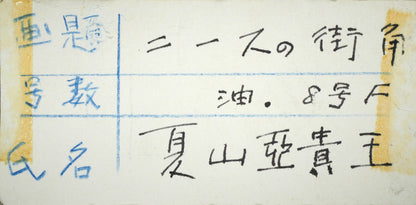 画題 ニースの街角
号数 油. 8号F
氏名 夏山亞貴王